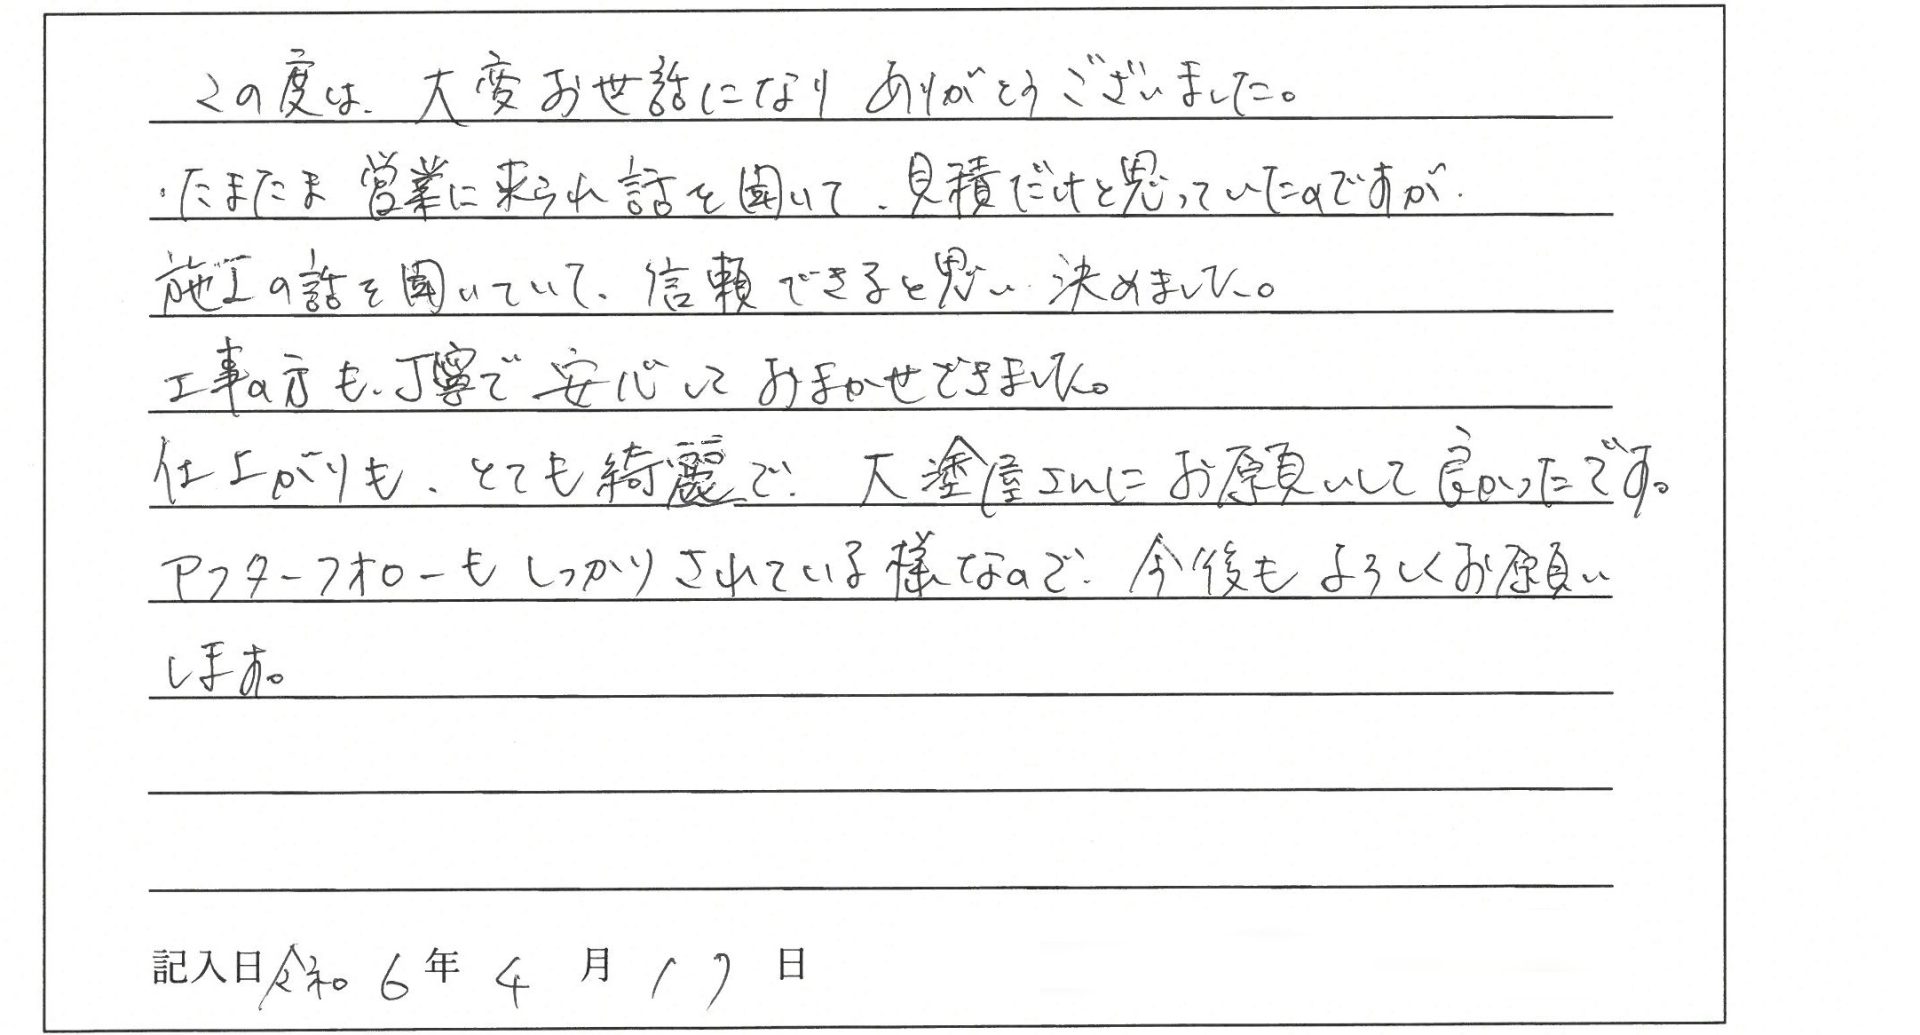 この度は、大変お世話になりありがとうございました。
たまたま営業に来られ話を聞いて、見積だけと思っていたのですが、
施工の話を聞いていて、信頼できると思い決めました。
工事の方も、丁寧で安心しておまかせできました。
仕上がりも、とても綺麗で、大塗屋さんにお願いして良かったです。
アフターフォローもしっかりされている様なので、今後もよろしくお願い
します。
記入日 令和 6 年 4 月 17 日